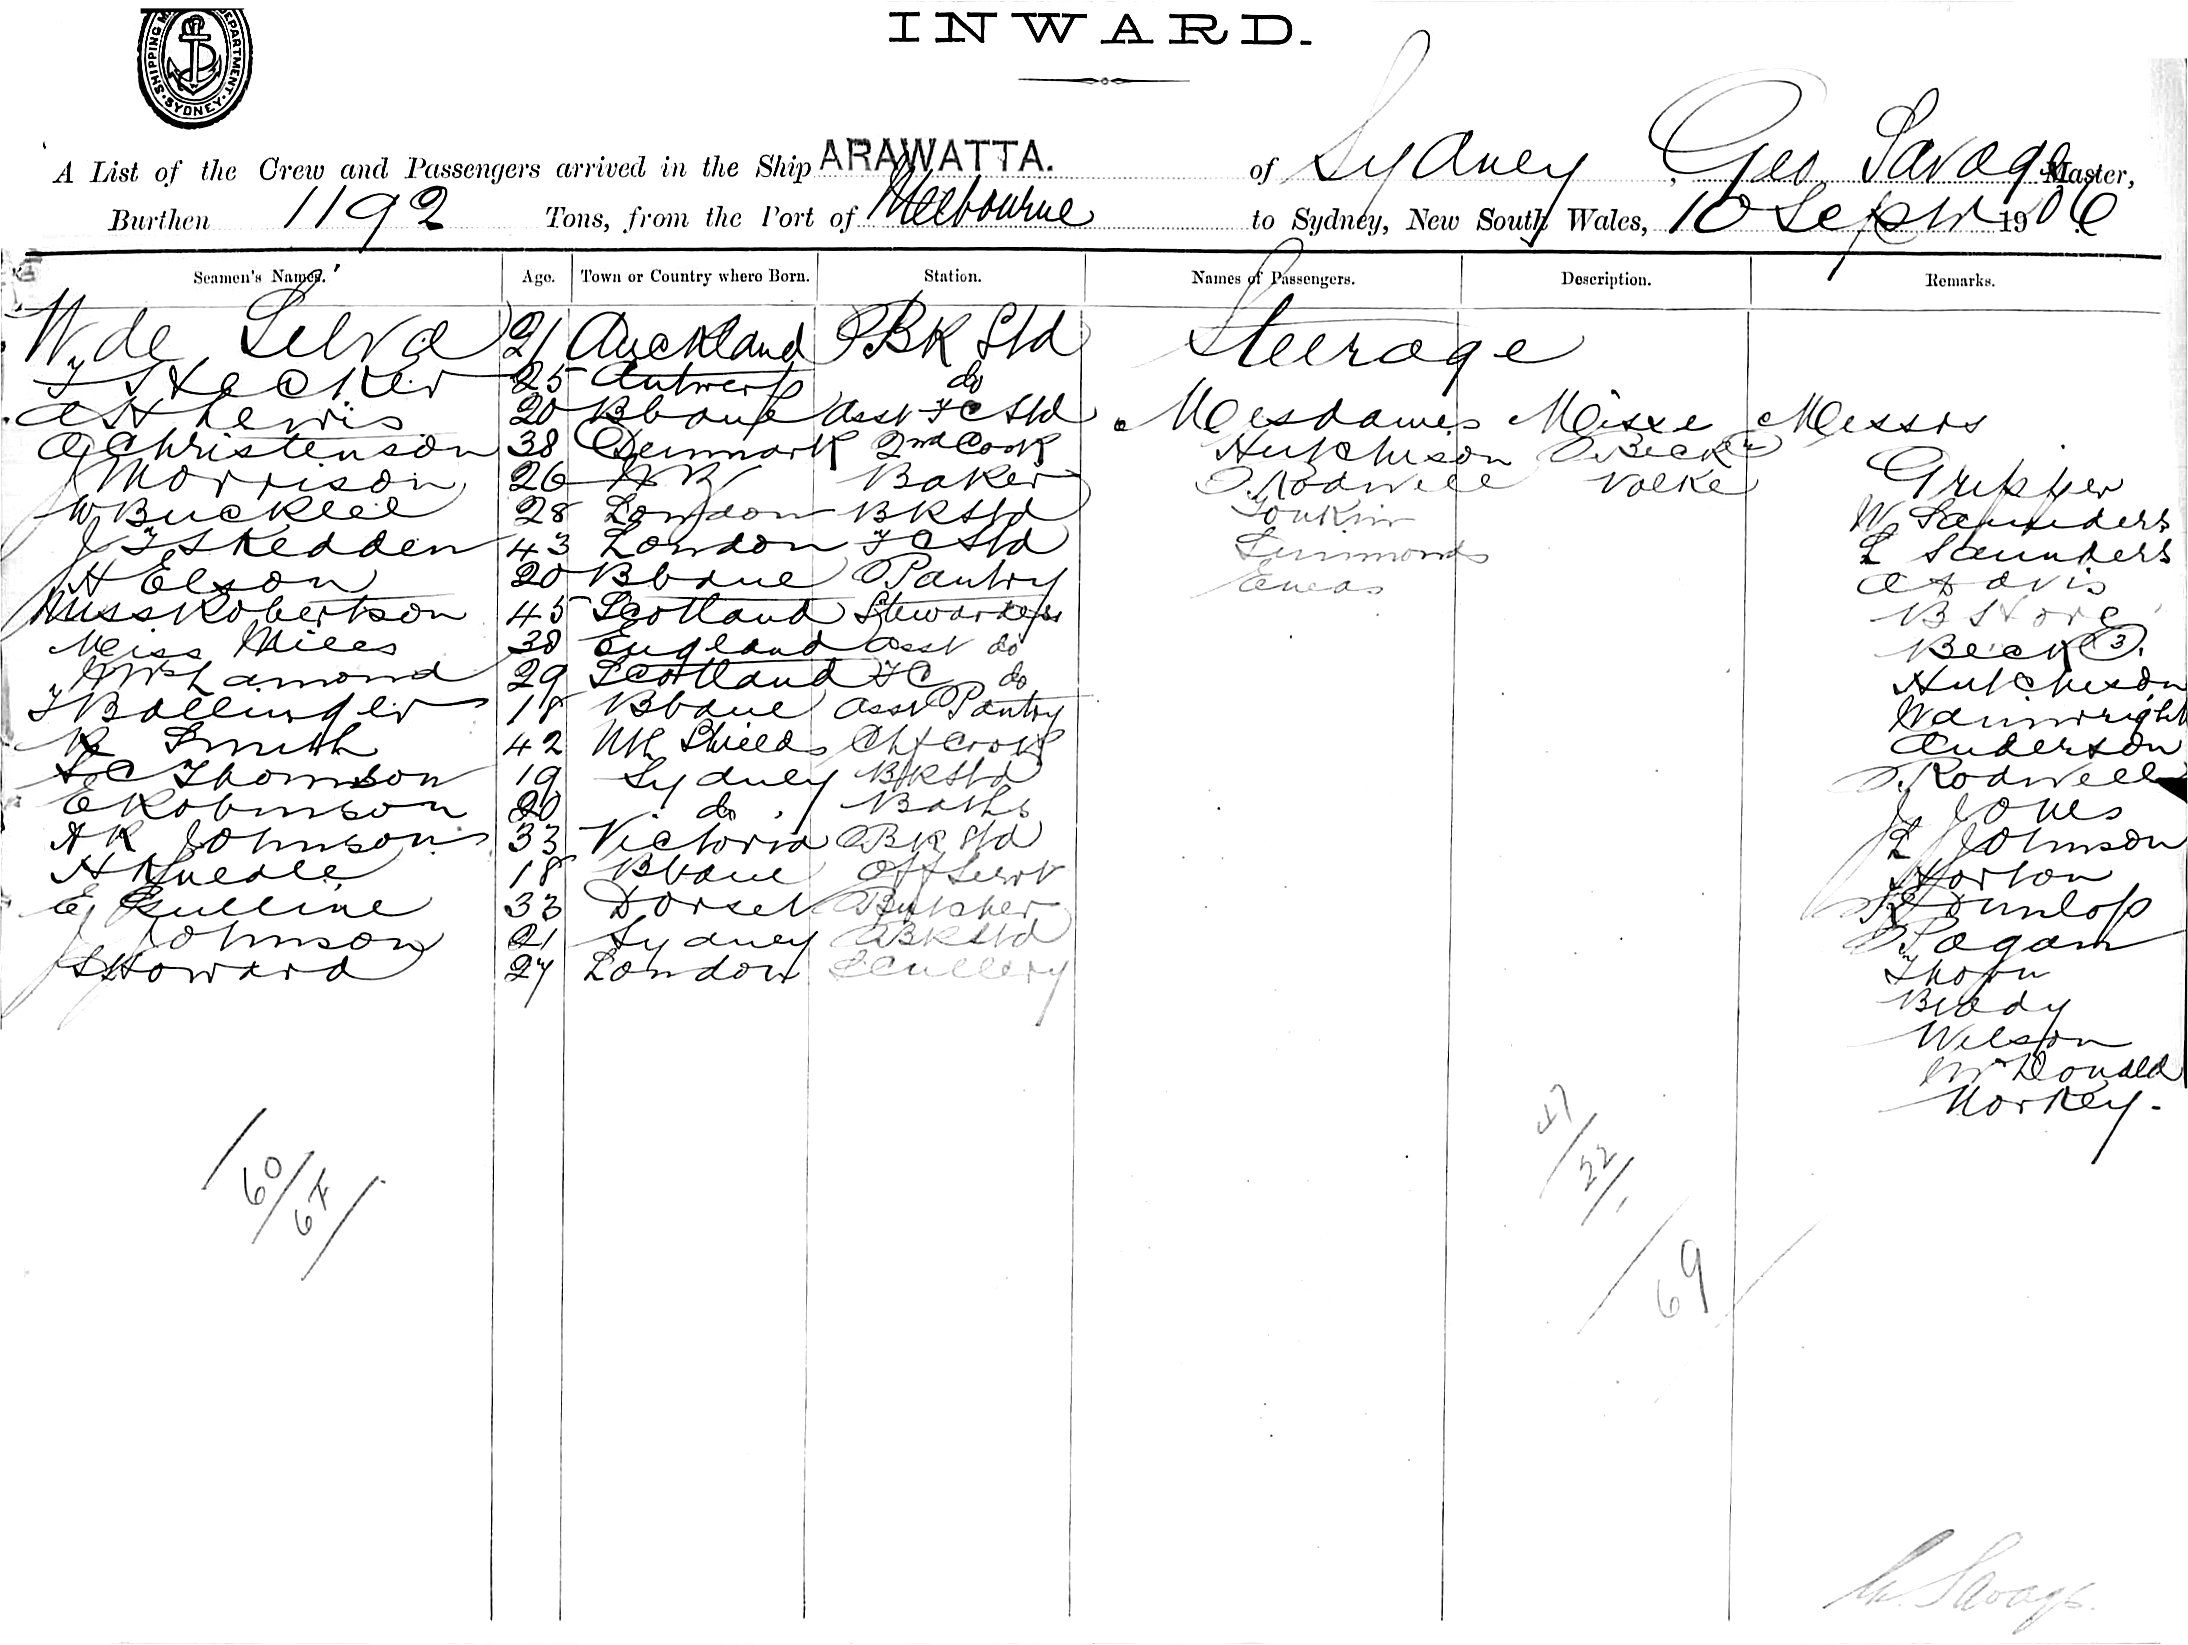 SHIPPING M DEPARTMENT. SYDNEY
INWARD.
A List of the Crew and Passengers arrived in the Ship ARAWATTA. of Sydney, Geo Savage Master,
Burthen 1192 Tons, from the Port of Melbourne to Sydney, New South Wales, 10 Sept 1906
Seamen's Names. Age. Town or Country where Born. Station. Names of Passengers. Description. Remarks.
W de Silva 21 Auckland BK Std Steerage
25 Antwerp do
A H Lewis 20 Bbane Asst FC Std Mesdames Misse Messrs
Christenson 38 Denmark 2nd Cook Hutchison Beck
J Morrison 26 Baker Rodwell Volke Gripper
W Bucklel 28 London BK Std Tonkin W Saunders
J T Skedden 43 London FC Std Simmonds L Saunders
H Elson 20 Bbane Pantry Eneas A Davis
Miss Robertson 45 Scotland Stewardess B
Miss Miles 38 England Asst do Beck 3.
Lamond 29 Scotland FC do Hutchison
F Ballinger 18 Bbane Asst Pantry Wainwright
R Smith 42 Nth Shields Chf Cook Anderson
Thomson 19 Sydney BK Std Rodwell
E Robinson 20 do Baths J Jones
A R Johnson 33 Victoria BK Std L Johnson
H 18 Bbane Off Servt Horton
E Gulline 33 Dorset Butcher Dunlop
J Johnson 21 Sydney BK Std Pagam
Howard 27 London Scullery Thorn
Brady
Wilson
McDonald
Morkey.
47/22/1
60/67
69
Savage.